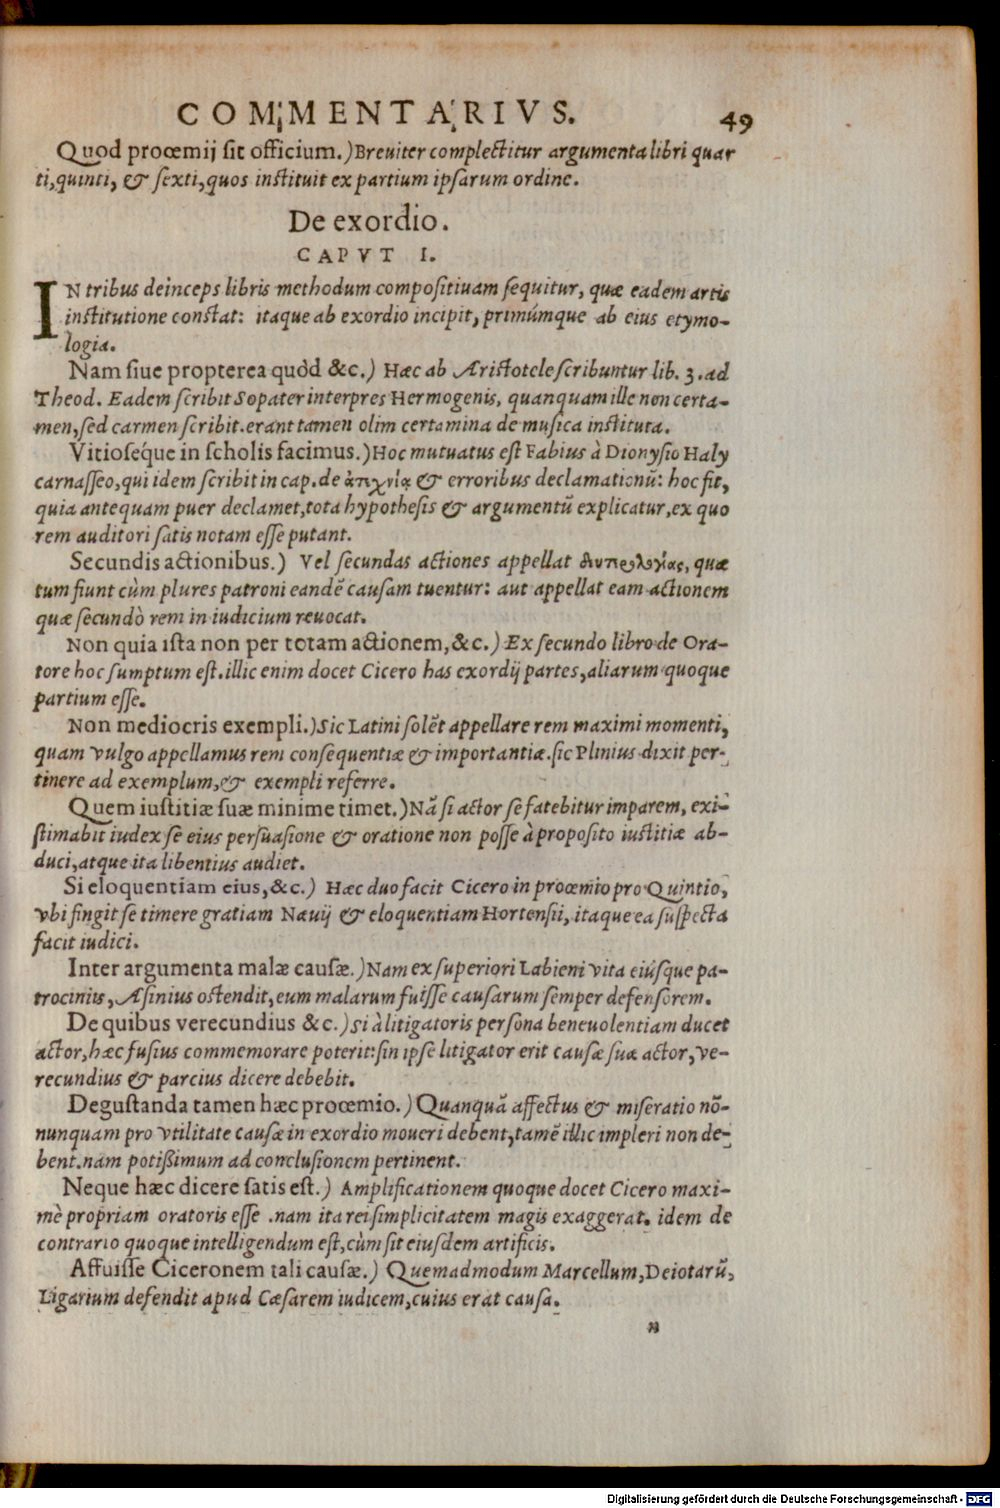 COMMENTARIVS. 49
Quod procemij sit officium.) Breuiter complectitur argumenta libri quar
ti, quinti, & sexti, quos instituit ex partium ipsarum ordine.
De exordio.
CAPVT I.
IN tribus deinceps libris methodum compositiuam sequitur, quæ eadem artis
institutione constat: itaque ab exordio incipit, primúmque ab eius etymo-
logia.
Nam siue propterea quòd &c.) Hæc ab Aristotele scribuntur lib. 3. ad
Theod. Eadem scribit Sopater interpres Hermogenis, quanquam ille non certa-
men, sed carmen scribit. erant tamen olim certamina de musica instituta.
Vitioséque in scholis facimus.) Hoc mutuatus est Fabius à Dionysio Haly
carnasseo, qui idem scribit in cap. de ἀτεχνίᾳ & erroribus declamationũ: hoc fit,
quia antequam puer declamet, tota hypothesis & argumentũ explicatur, ex quo
rem auditori satis notam esse putant.
Secundis actionibus.) Vel secundas actiones appellat δευτερολογίας, quæ
tum fiunt cùm plures patroni eandẽ causam tuentur: aut appellat eam actionem
quæ secundò rem in iudicium reuocat.
Non quia ista non per totam actionem, &c.) Ex secundo libro de Ora-
tore hoc sumptum est. illic enim docet Cicero has exordij partes, aliarum quoque
partium esse.
Non mediocris exempli.) Sic Latini solẽt appellare rem maximi momenti,
quam vulgo appellamus rem consequentiæ & importantiæ. sic Plinius dixit per-
tinere ad exemplum, & exempli referre.
Quem iustitiæ suæ minime timet.) Nã si actor se fatebitur imparem, exi-
stimabit iudex se eius persuasione & oratione non posse à proposito iustitiæ ab-
duci, atque ita libentius audiet.
Si eloquentiam eius, &c.) Hæc duo facit Cicero in procemio pro Quintio,
vbi fingit se timere gratiam Næuij & eloquentiam Hortensii, itaque ea suspecta
facit iudici.
Inter argumenta malæ causæ.) Nam ex superiori Labieni vita eiúsque pa-
trociniis, Asinius ostendit, eum malarum fuisse causarum semper defensorem.
De quibus verecundius &c.) Si à litigatoris persona beneuolentiam ducet
actor, hæc fusius commemorare poterit: sin ipse litigator erit causæ suæ actor, ve-
recundius & parcius dicere debebit.
Degustanda tamen hæc procemio.) Quanquã affectus & miseratio nõ-
nunquam pro vtilitate causæ in exordio moueri debent, tamẽ illic impleri non de-
bent. nam potißimum ad conclusionem pertinent.
Neque hæc dicere satis est.) Amplificationem quoque docet Cicero maxi-
mè propriam oratoris esse . nam ita rei simplicitatem magis exaggerat. idem de
contrario quoque intelligendum est, cùm sit eiusdem artificis.
Affuisse Ciceronem tali causæ.) Quemadmodum Marcellum, Deiotarũ,
Ligarium defendit apud Cæsarem iudicem, cuius erat causa.
N
Digitalisierung gefördert durch die Deutsche Forschungsgemeinschaft - DFG